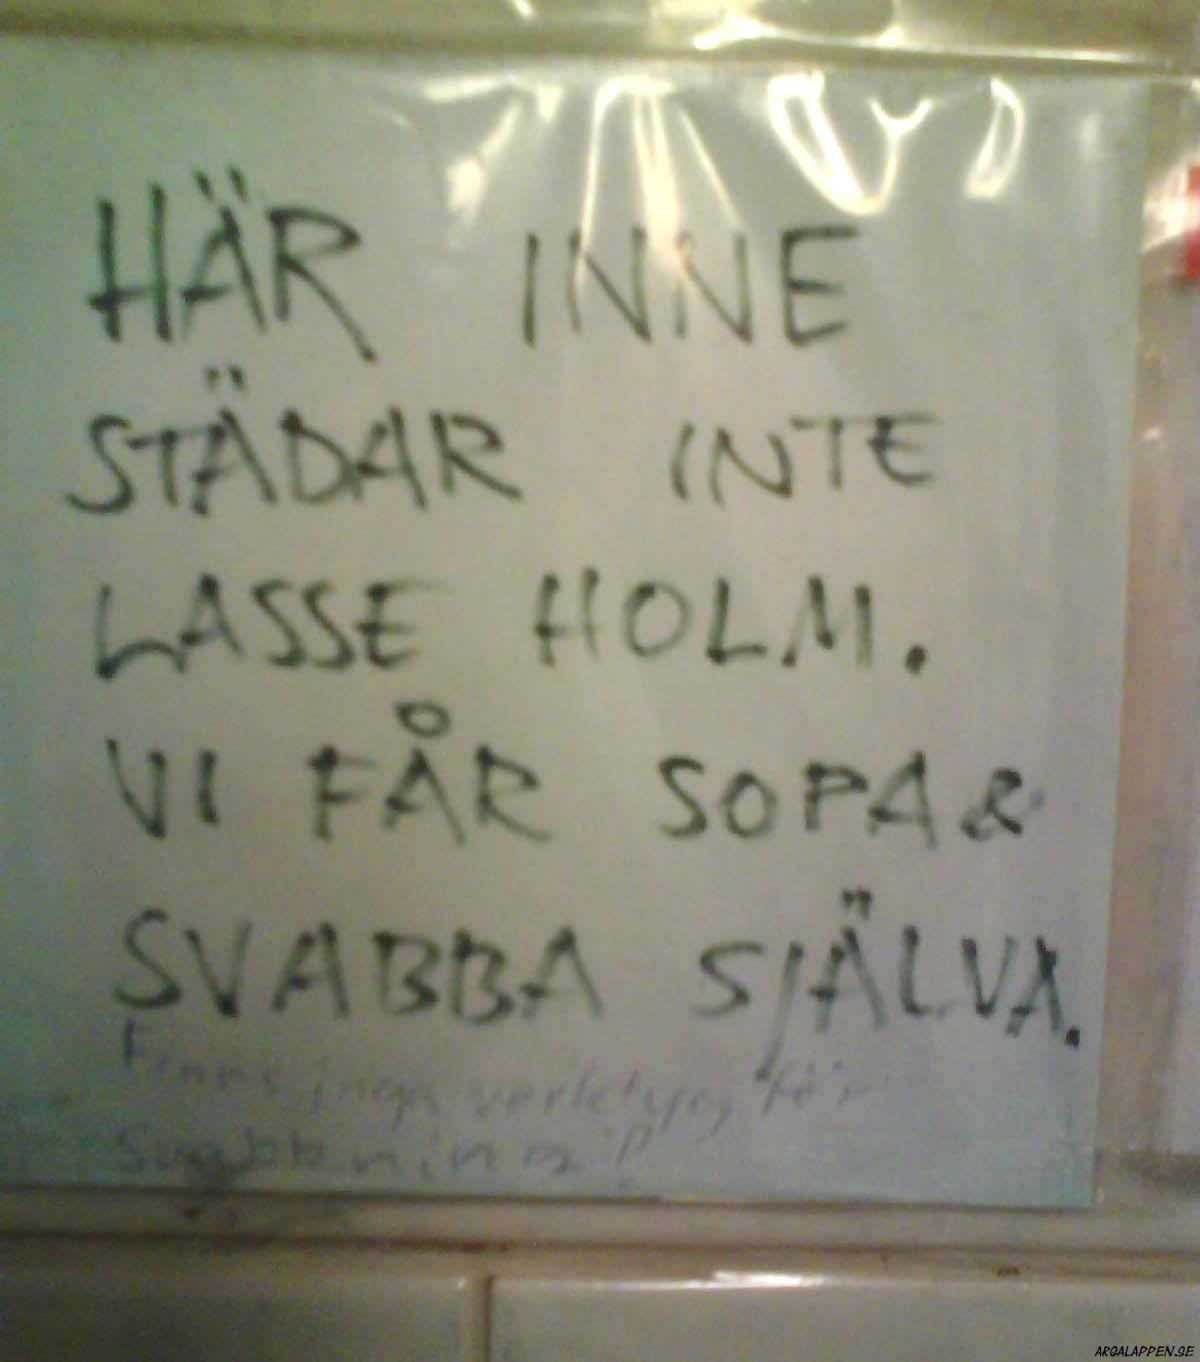 HÄR INNE
STÄDAR INTE
LASSE HOLM.
VI FÅR SOPA &
SVABBA SJÄLVA.
Finns inga verktyg för
Svabbning!?
ARGALAPPEN.SE